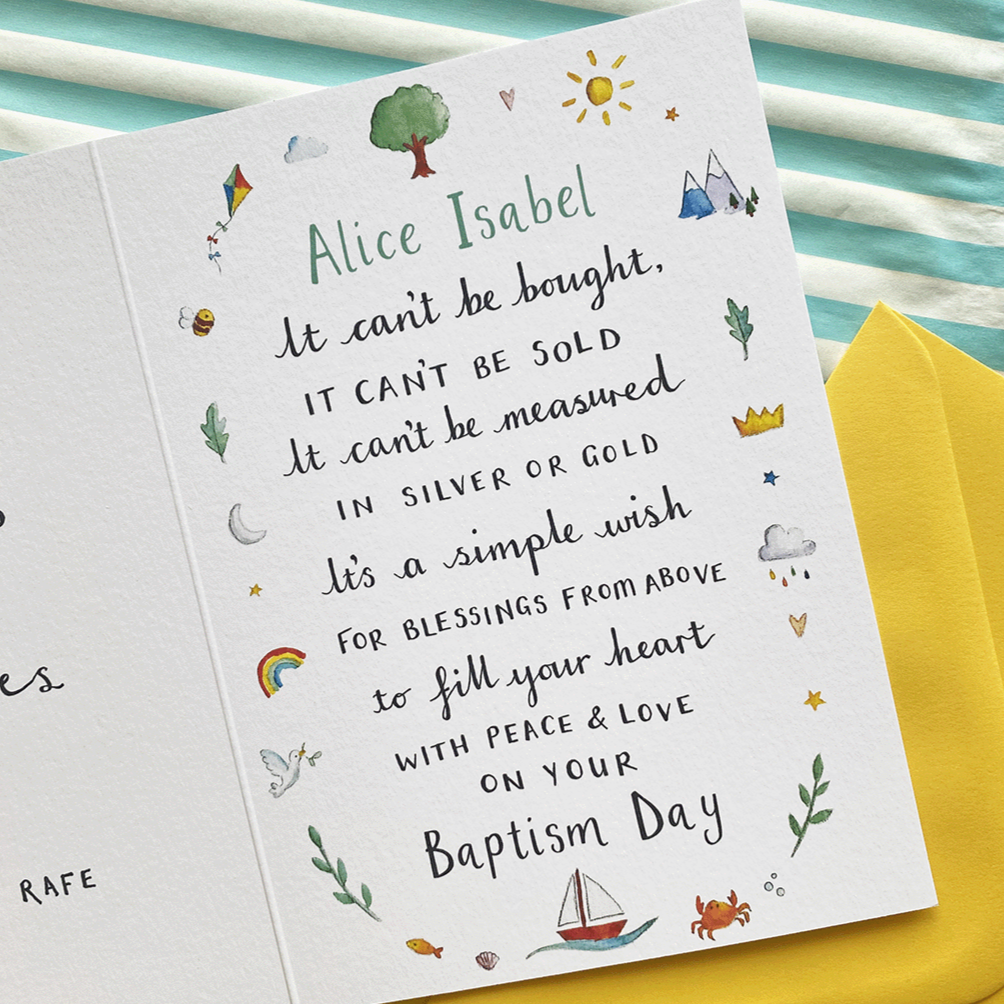 RAFE
Alice Isabel
It can't be bought,
IT CAN'T BE SOLD
It can't be measured
IN SILVER OR GOLD
It's a simple wish
FOR BLESSINGS FROM ABOVE
to fill your heart
WITH PEACE & LOVE
ON YOUR
Baptism Day